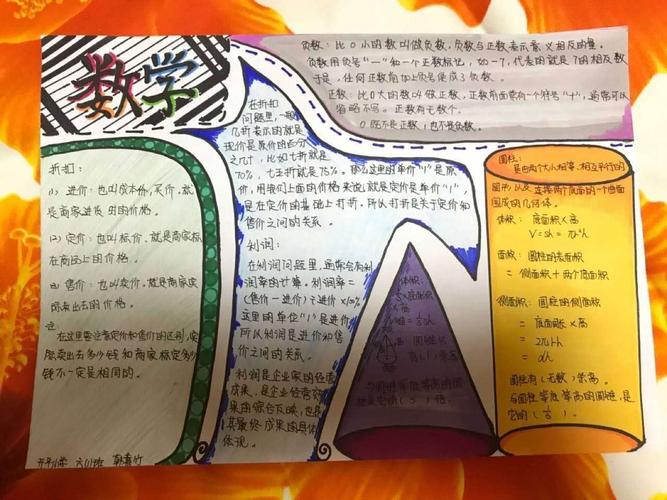 数学
负数：比0小的数叫做负数，负数与正数表示意义相反的量。
负数用负号"一"和一个正数标记，如-7，代表的就是7的相反数
于是，任何正数前加上负号便成了负数。
正数：比0大的数叫做正数，正数前面常有一个符号"+"，通常可以
省略不写。正数有无数个。
0既不是正数，也不是负数。
折扣：
(1) 进价：也叫成本价，买价，就
是商家进货时的价格。
(2) 定价：也叫标价，就是商家标
在商品上的价格。
售价：也叫卖价，就是商家实
际卖出去的价格。
注：
在这里要注意定价和售价的区别，实
际卖出去多少钱和商家标定多少
钱不一定是相同的。
六(1)班
在折扣
问题里，一般
几折表示的就是
现价是原价的百分
之几十，比如七折就是
70%，七五折就是75%。那么这里的单价"1"是原
价，用我们上面的价格来说就是定价是单价"1"，
是在定价的基础上打折，所以打折是关于定价和
售价之间的关系。
利润：
在利润问题里，通常会有利
润率的计算。利润率=
(售价一进价)÷进价×100%
这里的单位"1"是进价
所以利润是进价和售
价之间的关系。
利润是企业家的经营
成果，是企业经营效
果的综合反映，也是
其最终成果的具体
体现。
体积：
圆锥
与圆锥等底等高的圆
圆柱：
是由两个大小相等、相互平行的
圆形以及连接两个底面的一个曲面
围成的几何体。
体积：底面积×高
V=Sh=πr²h
面积：圆柱的表面积
=侧面积+两个底面积
侧面积：圆柱的侧面积
=底面周长×高
=2πrh
=dh
圆柱有(无数)条高。
与圆柱等底等高的圆锥，是
它的(⅓)。